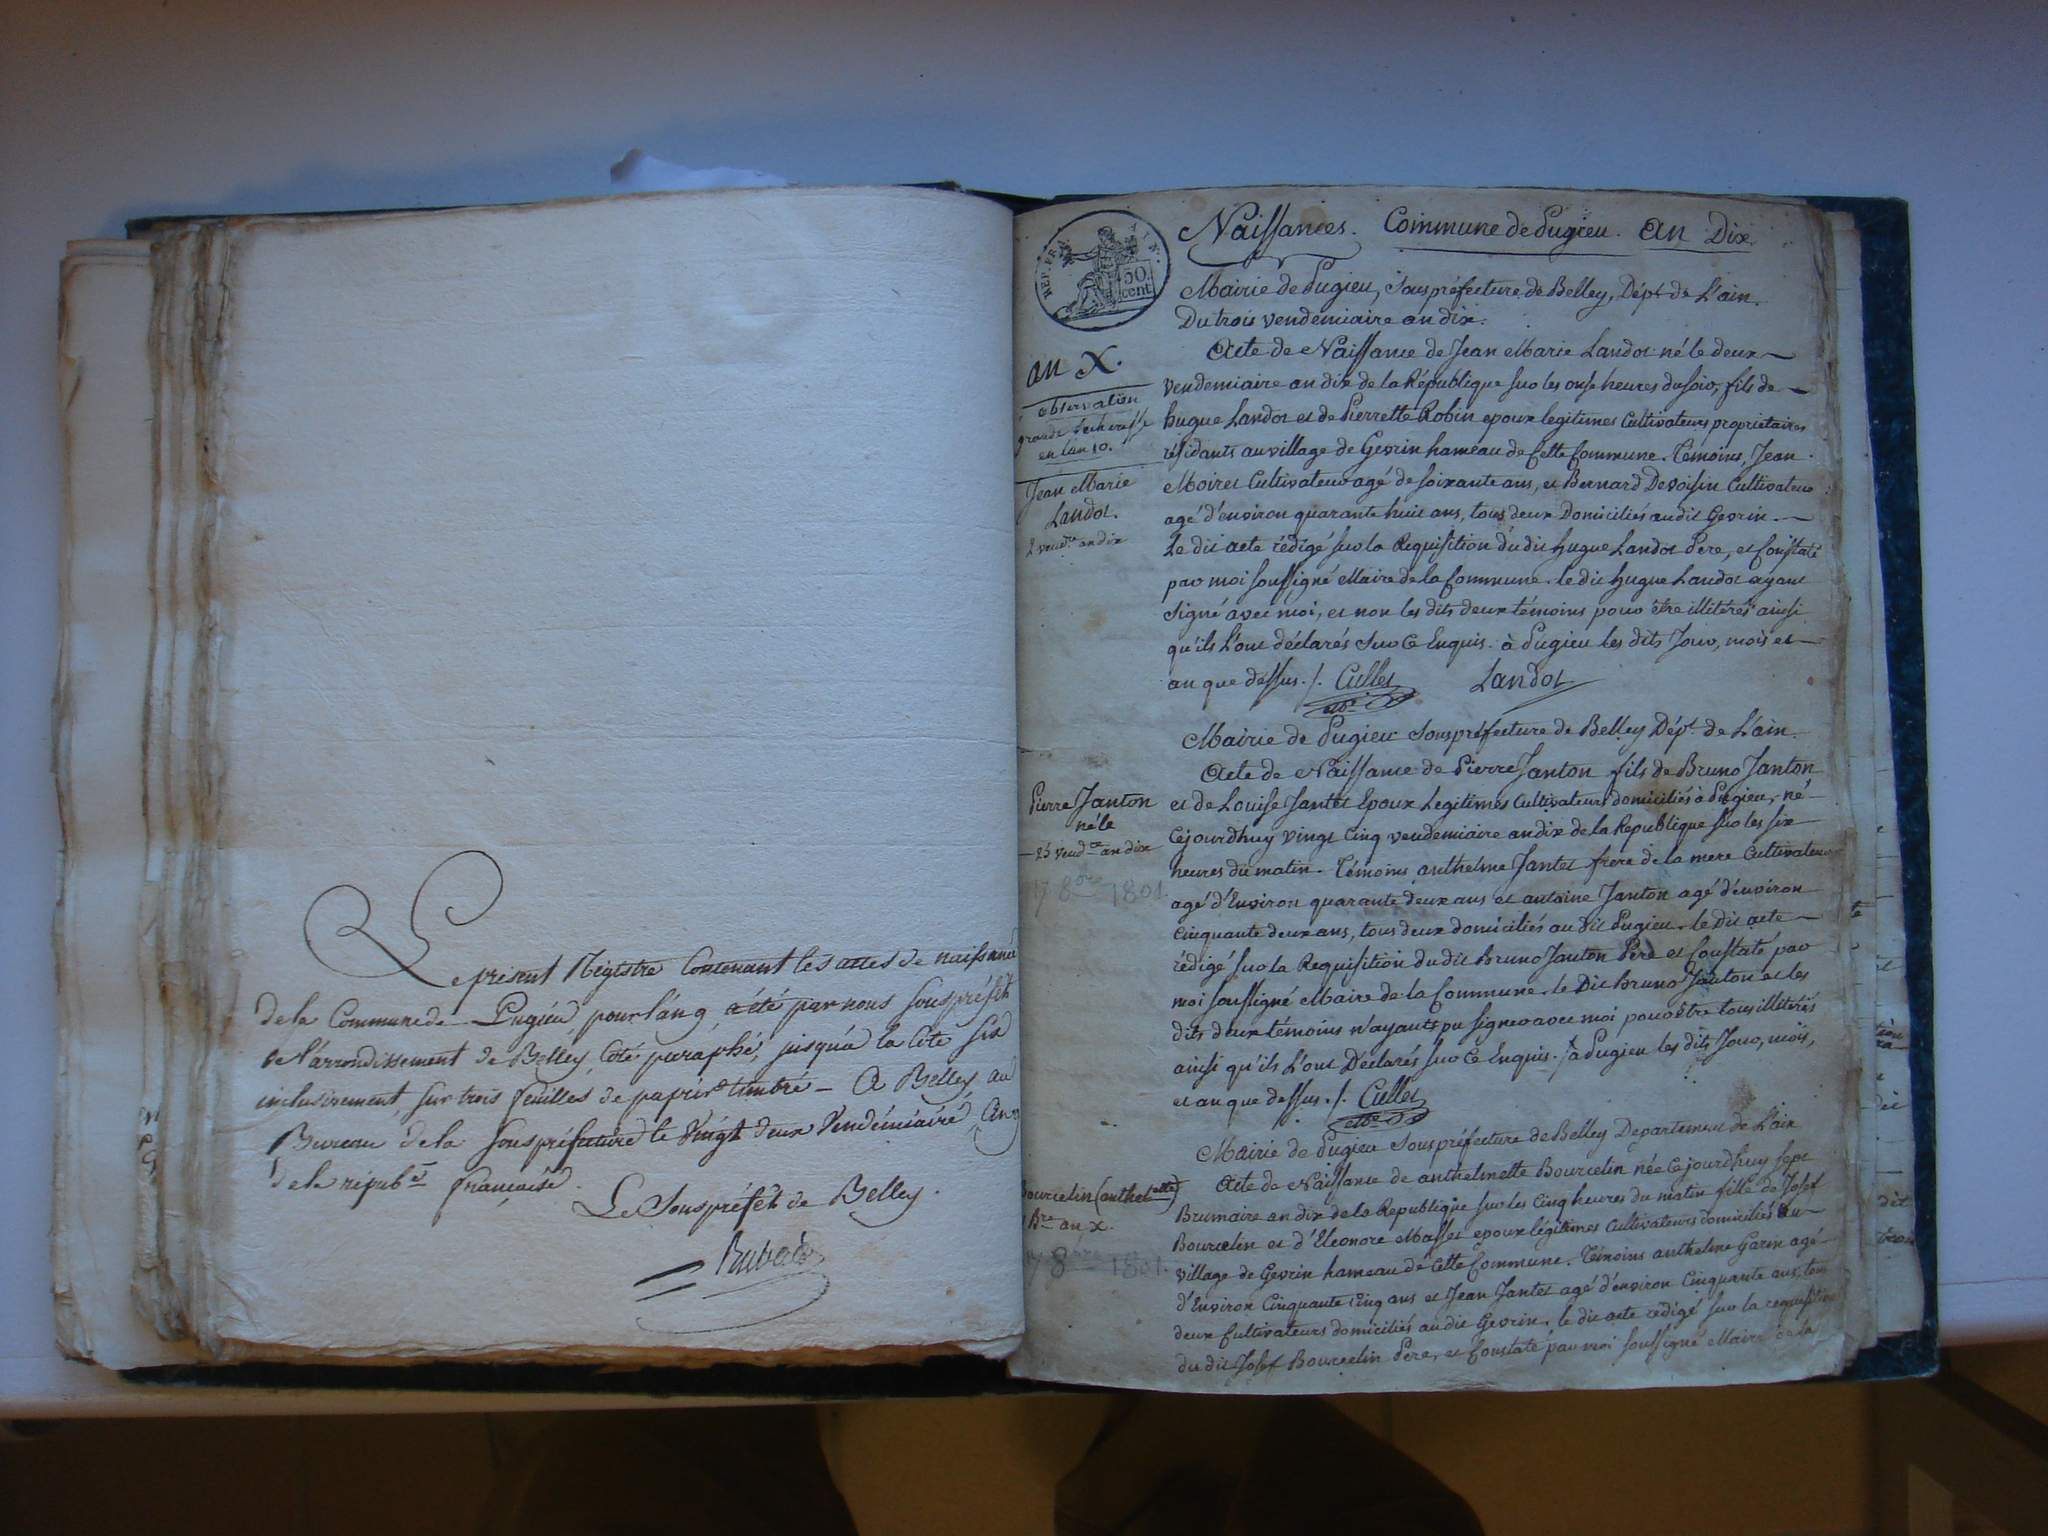 Le présent Régistre Contenant les actes de naissance
de la Commune de Pugieu, pour l'an 9, a été par nous souspréfet
de l'arrondissement de Belley, coté, paraphé, jusqu'à la Cote six
inclusivement, sur trois feuilles de papier timbré - A Belley, au
Bureau de la souspréfecture le Vingt deux Vendémiaire,
de la répub.e française.
Le Souspréfet de Belley.
Naissances. Commune de Pugieu. an Dix.
REP. FRA.
AIN.
50.
cent.
Mairie de Pugieu, Souspréfecture de Belley, Dép.t de L'ain.
Du trois vendemiaire an dix.
an X.
observation
grande sécheresse
en l'an 10.
Jean Marie
Landot.
2 vend.re an dix
Acte de Naissance de Jean Marie Landot né le deux
vendemiaire an dix de la République sur les onse heures du soir, fils de
hugue Landot et de Pierrette Robin epoux legitimes Cultivateurs propriétaires
résidants au village de Gevrin hameau de Cette Commune. Témoins, Jean
Moiret Cultivateur agé de soixante ans, et Bernard Devoisin Cultivateur
agé d'environ quarante huit ans, tous deux Domiciliés au dit Gevrin.
Le dit acte rédigé sur la Requisition du dit hugue Landot Père, et Constaté
par moi soussigné Maire de la Commune. le dit hugue Landot ayant
signé avec moi, et non les dits deux témoins pour être illitérés ainsi
qu'ils L'ont déclarés sur Ce Enquis. à Pugieu les dits Jour, mois et
an que dessus. /. Cullet Landot
Mairie de Pugieu Souspréfecture de Belley Dép.t de L'ain.
Pierre Janton
né le
25 vend.re an dix
17 8bre 1801.
Acte de Naissance de Pierre Janton fils de Bruno Janton
et de Louise Jantet Epoux Legitimes Cultivateurs domiciliés à Pugieu, né
Cejourdhuy vingt Cinq vendemiaire an dix de la Republique sur les six
heures du matin. Témoins anthelme Jantet frère de la mere Cultivateur
agé d'Environ quarante deux ans et antoine Janton agé d'environ
Cinquante deux ans, tous deux domiciliés au dit Pugieu. le Dit acte
rédigé sur la Requisition du dit Bruno Janton Père et Constaté par
moi soussigné Maire de la Commune. le Dit bruno Janton et les
dits deux témoins n'ayants pu signer avec moi pour être tous illitérés
ainsi qu'ils L'ont Déclarés sur Ce Enquis. à Pugieu les dits Jour, mois,
et an que dessus. /. Cullet
Mairie de Pugieu Souspréfecture de Belley Departement de L'ain
Bourcelin (anthelmette)
B.re an X.
8bre 1801.
Acte de Naissance de anthelmette Bourcelin née Cejourdhuy sept
Brumaire an dix de la Republique sur les Cinq heures du matin fille de Josef
Bourcelin et d'Eleonore Masset epoux légitimes Cultivateurs domiciliés au
village de Gevrin hameau de Cette Commune. Témoins anthelme Garin agé
d'Environ Cinquante cinq ans et Jean Jantet agé d'environ Cinquante ans, tous
deux Cultivateurs domiciliés au dit Gevrin. le dit acte redigé sur la requisition
du dit Josef Bourcelin Père, et Constaté par moi soussigné Maire de la